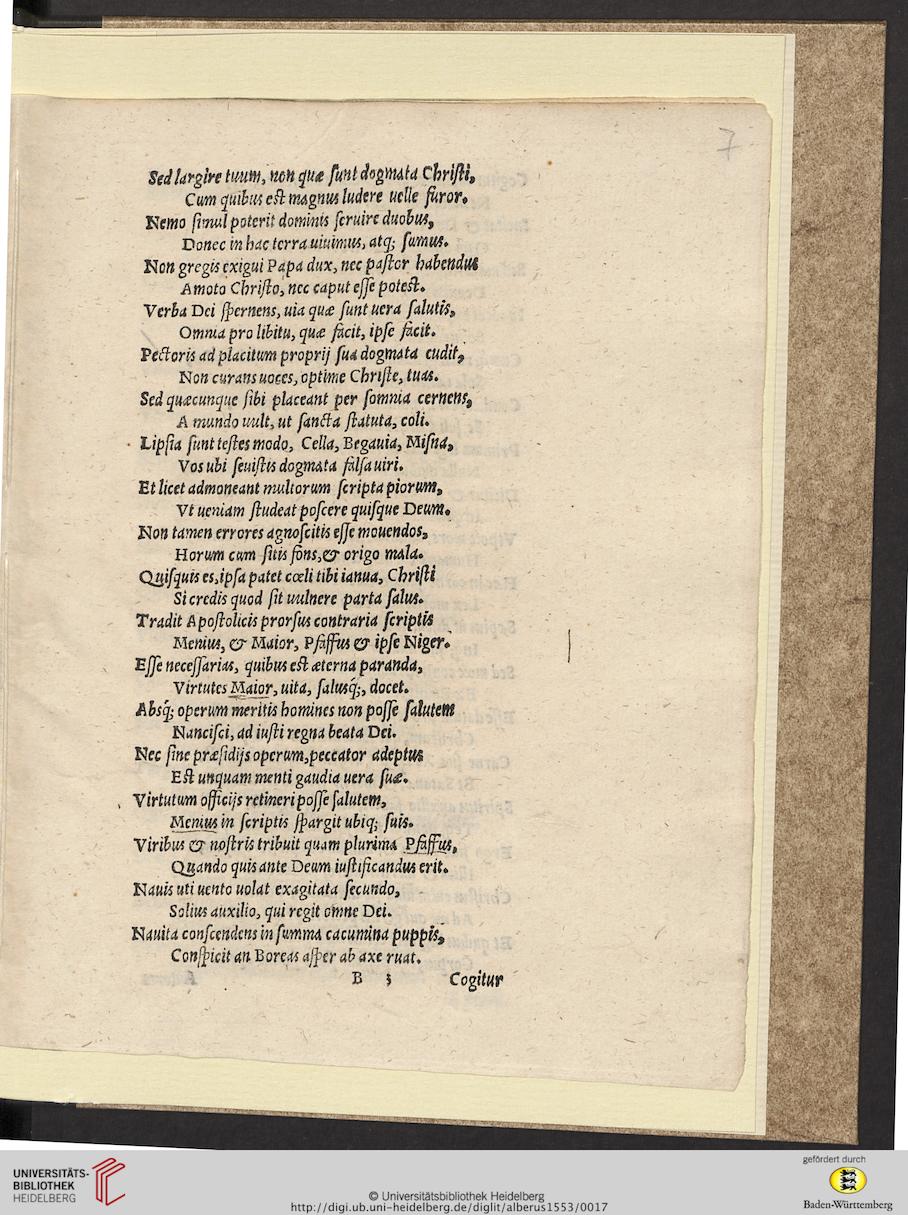 7
Sed largire tuum, non quæ ſunt dogmata Chriſti,
Cum quibus eſt magnus ludere uelle furor.
Nemo ſimul poterit dominis ſeruire duobus,
Donec in hac terra uiuimus, atq; ſumus.
Non gregis exigui Papa dux, nec paſtor habendus
Amoto Chriſto, nec caput eſſe poteſt.
Verba Dei ſpernens, uia quæ ſunt uera ſalutis,
Omnia pro libitu, quæ facit, ipſe facit.
Pectoris ad placitum proprij ſua dogmata cudit,
Non curans uoces, optime Chriſte, tuas.
Sed quæcunque ſibi placeant per ſomnia cernens,
A mundo uult, ut ſancta ſtatuta, coli.
Lipſia ſunt teſtes modo, Cella, Begauia, Miſna,
Vos ubi ſeuiſtis dogmata falſa uiri.
Et licet admoneant multorum ſcripta piorum,
Vt ueniam ſtudeat poſcere quiſque Deum.
Non tamen errores agnoſcitis eſſe mouendos,
Horum cum ſitis fons, & origo mala.
Quiſquis es, ipſa patet cœli tibi ianua, Chriſti
Si credis quod ſit uulnere parta ſalus.
Tradit Apoſtolicis prorſus contraria ſcriptis
Menius, & Maior, Pfaffus & ipſe Niger.
Eſſe neceſſarias, quibus eſt æterna paranda,
Virtutes Maior, uita, ſalusq́;, docet.
Absq́; operum meritis homines non poſſe ſalutem
Nanciſci, ad iuſti regna beata Dei.
Nec ſine præſidijs operum, peccator adeptus
Eſt unquam menti gaudia uera ſuæ.
Virtutum officijs retineri poſſe ſalutem,
Menius in ſcriptis ſpargit ubiq; ſuis.
Viribus & noſtris tribuit quam plurima Pfaffus,
Quando quis ante Deum iuſtificandus erit.
Nauis uti uento uolat exagitata ſecundo,
Solius auxilio, qui regit omne Dei.
Nauita conſcendens in ſumma cacumina puppis,
Conſpicit an Boreas aſper ab axe ruat.
B 3 Cogitur
UNIVERSITÄTS-
BIBLIOTHEK
HEIDELBERG
© Universitätsbibliothek Heidelberg
http://digi.ub.uni-heidelberg.de/diglit/alberus1553/0017
gefördert durch
Baden-Württemberg